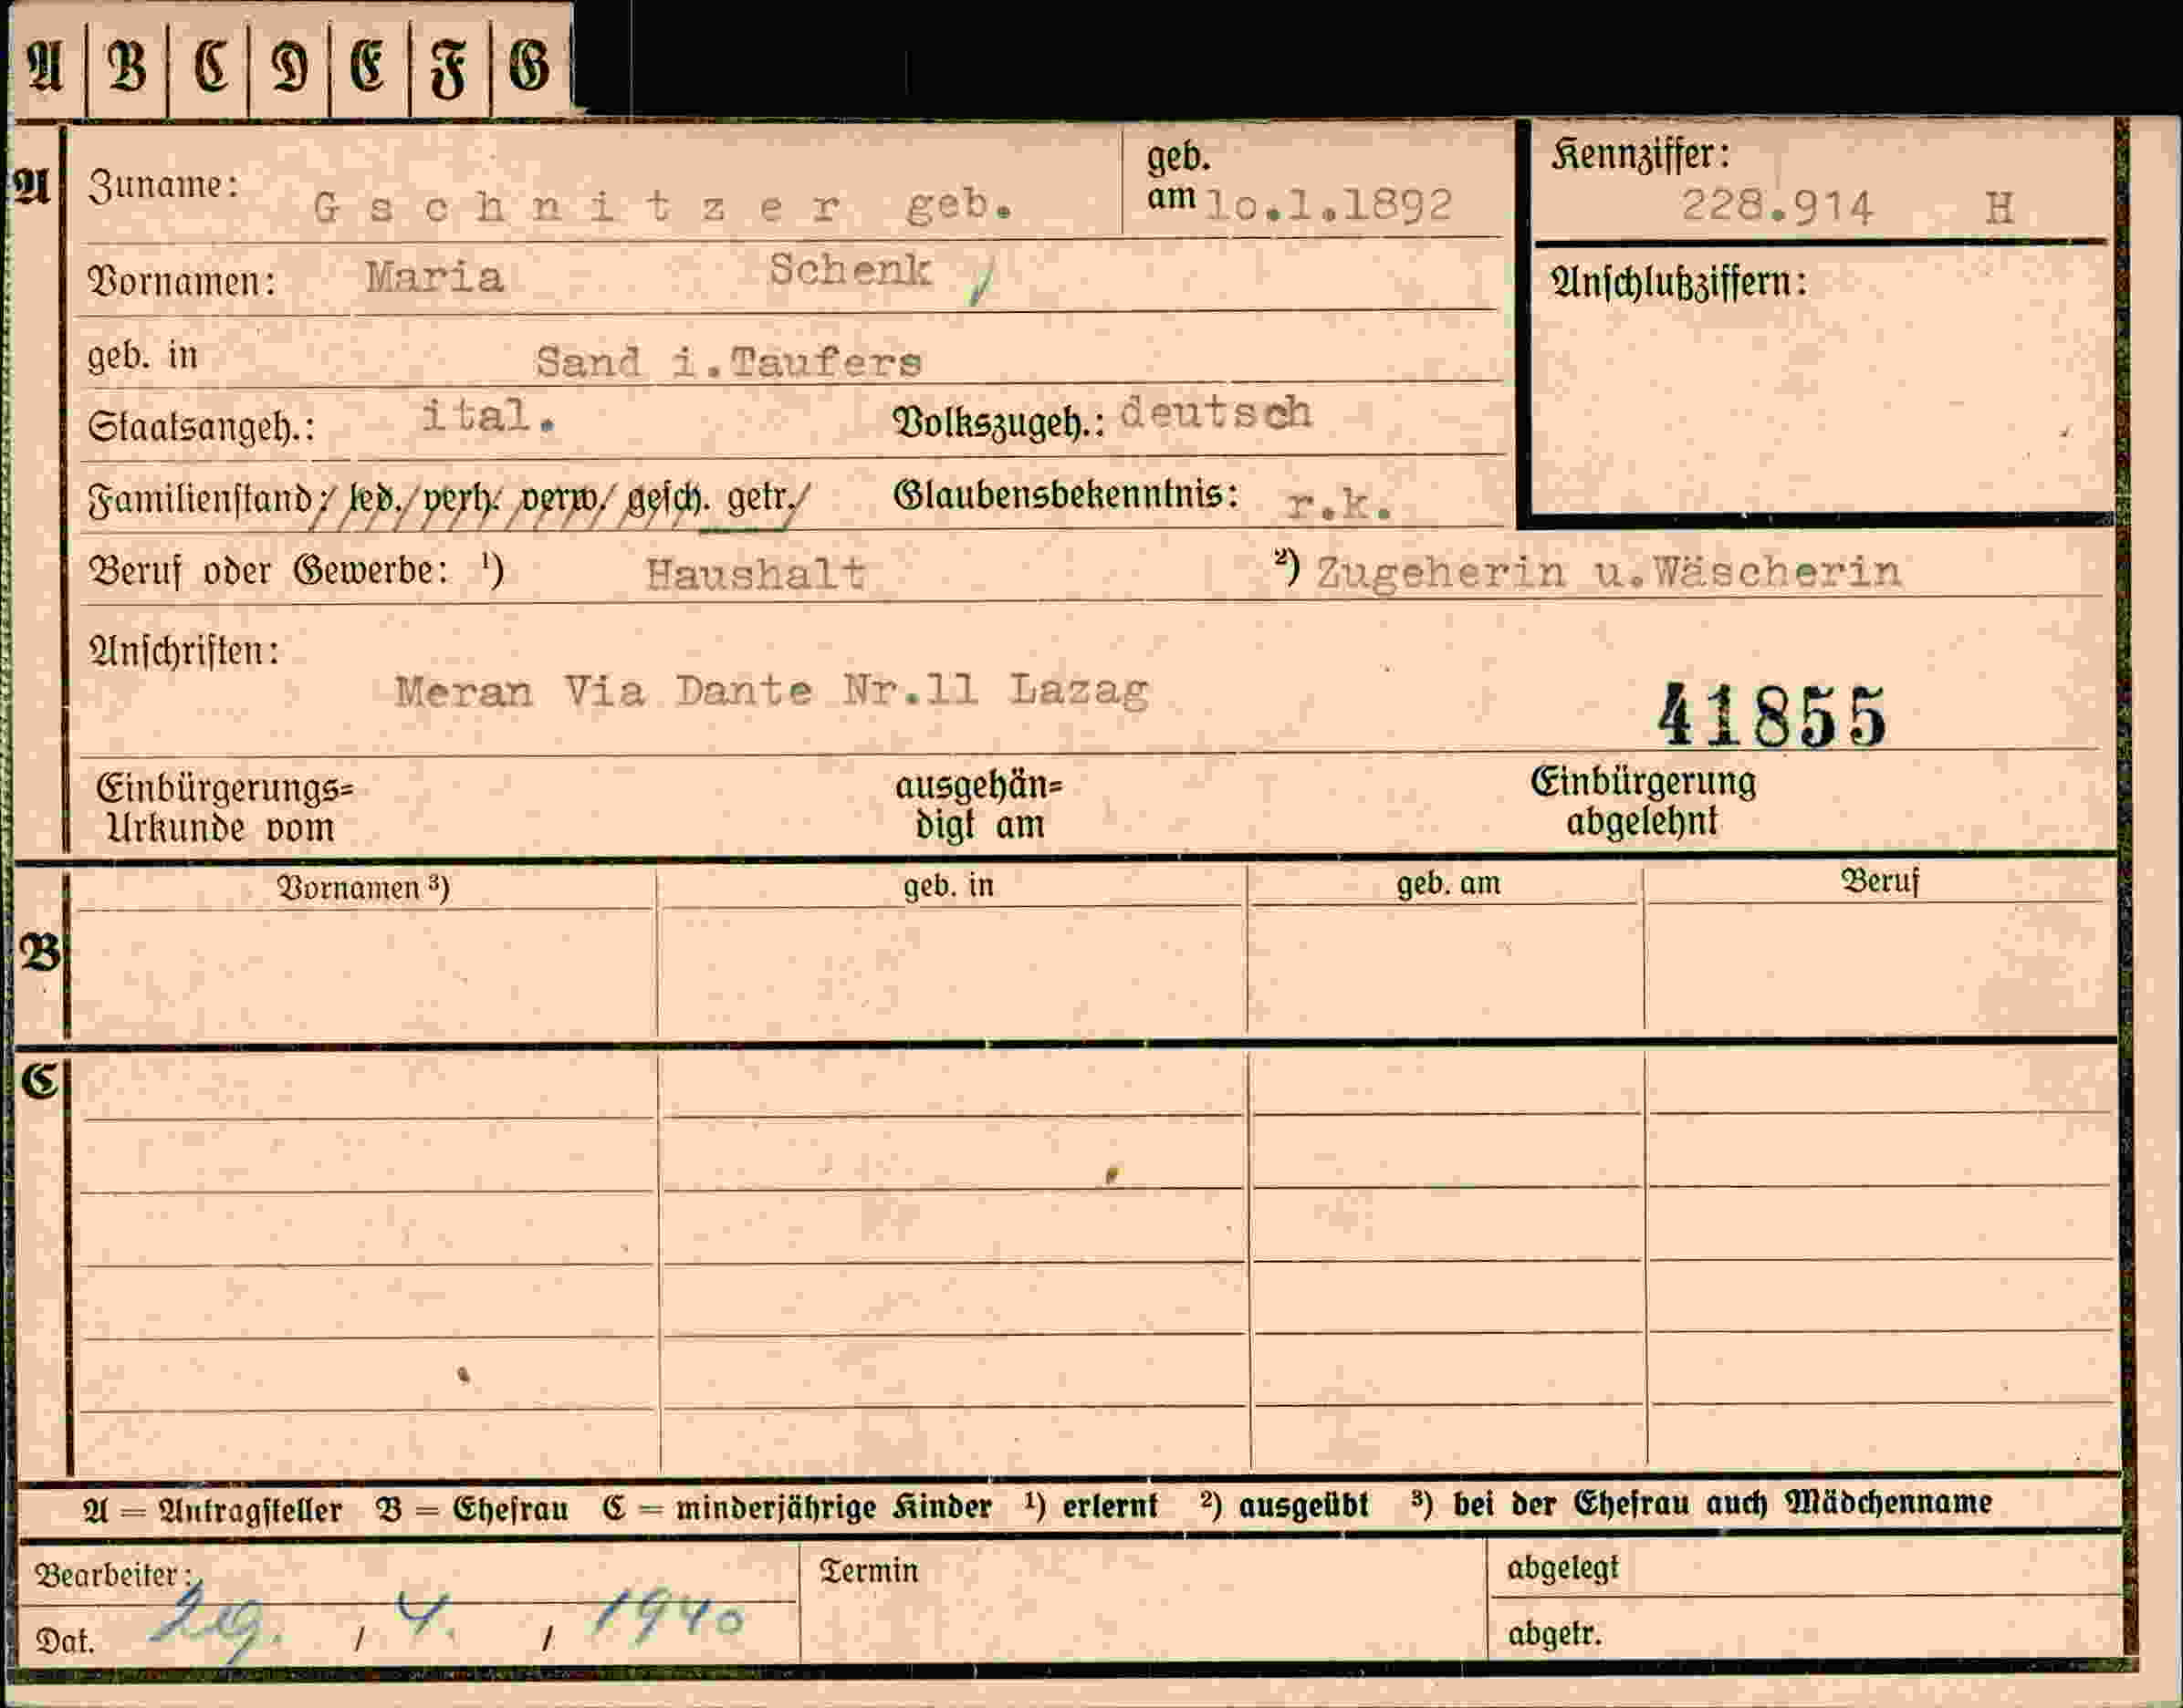 A B C D E F G
A Zuname: Gschnitzer geb. geb. am 10.1.1892 Kennziffer: 228.914 H
Vornamen: Maria Schenk Anschlußziffern:
geb. in Sand i.Taufers
Staatsangeh.: ital. Volkszugeh.: deutsch
Familienstand: led. verh. verw. gesch. getr. Glaubensbekenntnis: r.k.
Beruf oder Gewerbe: ¹) Haushalt ²) Zugeherin u.Wäscherin
Anschriften:
Meran Via Dante Nr.11 Lazag 41855
Einbürgerungs= ausgehän= Einbürgerung
Urkunde vom digt am abgelehnt
Vornamen ³) geb. in geb. am Beruf
B
C
A = Antragsteller B = Ehefrau C = minderjährige Kinder ¹) erlernt ²) ausgeübt ³) bei der Ehefrau auch Mädchenname
Bearbeiter: Termin abgelegt
Dat. 29. / 4. / 1940 abgetr.